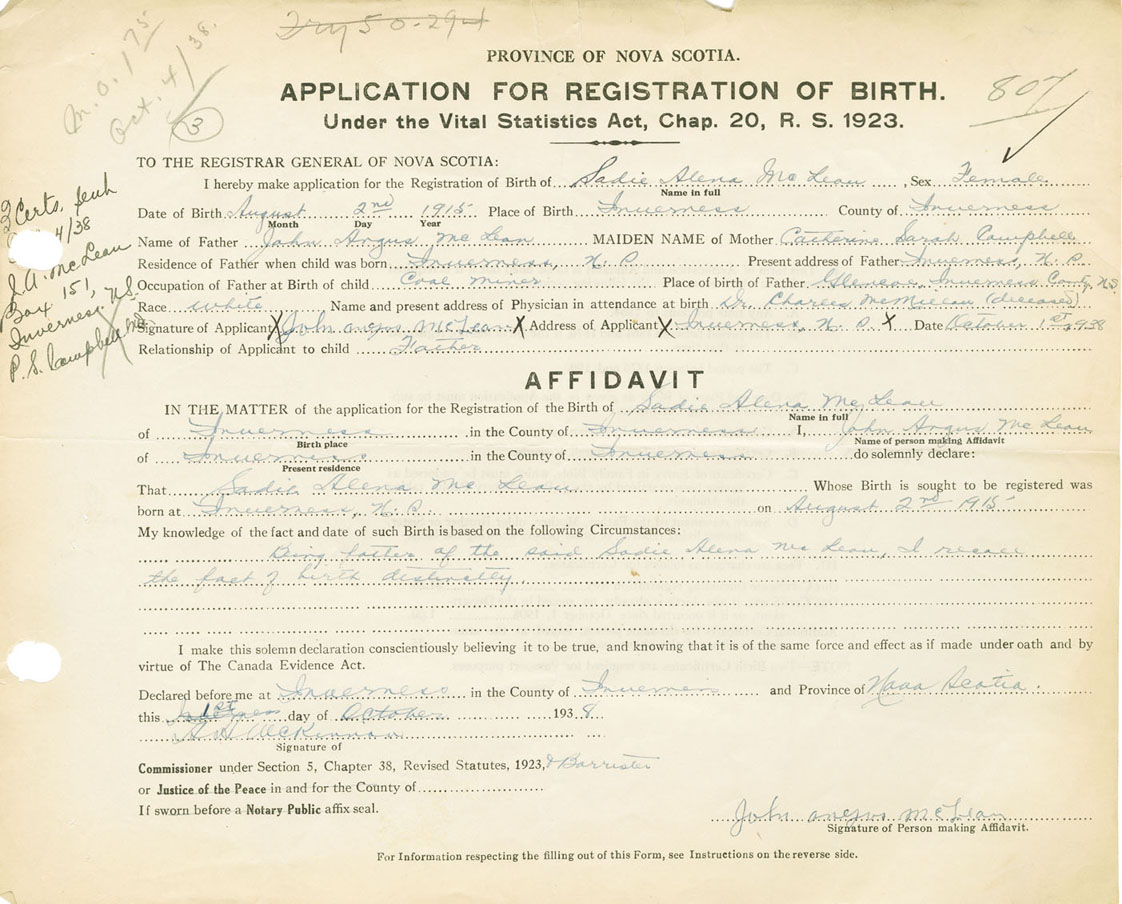 Try 50-294
M.O. 175
Oct. 4/38.
3
807
PROVINCE OF NOVA SCOTIA.
APPLICATION FOR REGISTRATION OF BIRTH.
Under the Vital Statistics Act, Chap. 20, R. S. 1923.
TO THE REGISTRAR GENERAL OF NOVA SCOTIA:
I hereby make application for the Registration of Birth of Sadie Alena McLean, Sex Female
Name in full
Date of Birth August 2nd 1915 Place of Birth Inverness County of Inverness
Month Day Year
Name of Father John Angus McLean MAIDEN NAME of Mother Catherine Sarah Campbell
Residence of Father when child was born Inverness, N.S. Present address of Father Inverness, N.S.
Occupation of Father at Birth of child Coal miner Place of birth of Father Inverness County, N.S.
Race White Name and present address of Physician in attendance at birth Dr. Charles McMillan (deceased)
Signature of Applicant X John angus McLean X Address of Applicant X Inverness, N.S. X Date October 1st, 1938
Relationship of Applicant to child Father
2 Certs.
4/38
J.A. McLean
Box 151,
Inverness N.S.
P.S. Campbell
AFFIDAVIT
IN THE MATTER of the application for the Registration of the Birth of Sadie Alena McLean
Name in full
of Inverness in the County of Inverness I, John Angus McLean
Birth place Name of person making Affidavit
of Inverness in the County of Inverness do solemnly declare:
Present residence
That Sadie Alena McLean Whose Birth is sought to be registered was
born at Inverness, N.S. on August 2nd 1915
My knowledge of the fact and date of such Birth is based on the following Circumstances:
Being father of the said Sadie Alena McLean, I recall
the fact of birth distinctly.
I make this solemn declaration conscientiously believing it to be true, and knowing that it is of the same force and effect as if made under oath and by
virtue of The Canada Evidence Act.
Declared before me at Inverness in the County of Inverness and Province of Nova Scotia.
this 1st day of October 1938
McKinnon
Signature of
Commissioner under Section 5, Chapter 38, Revised Statutes, 1923, & Barrister
or Justice of the Peace in and for the County of
If sworn before a Notary Public affix seal.
John angus McLean
Signature of Person making Affidavit.
For Information respecting the filling out of this Form, see Instructions on the reverse side.